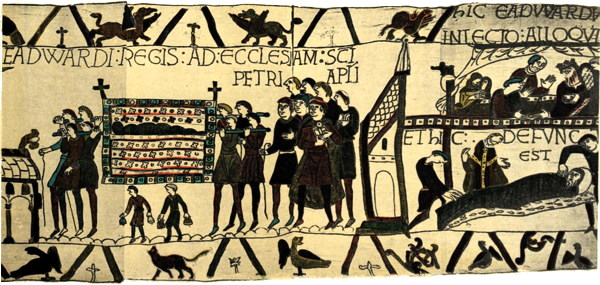 EADWARDI : REGIS : AD : ECCLESIAM : SCI
PETRI APLI
HIC EADWARDV
IN LECTO : ALLOQVI
ET HIC : DEFVNC
EST